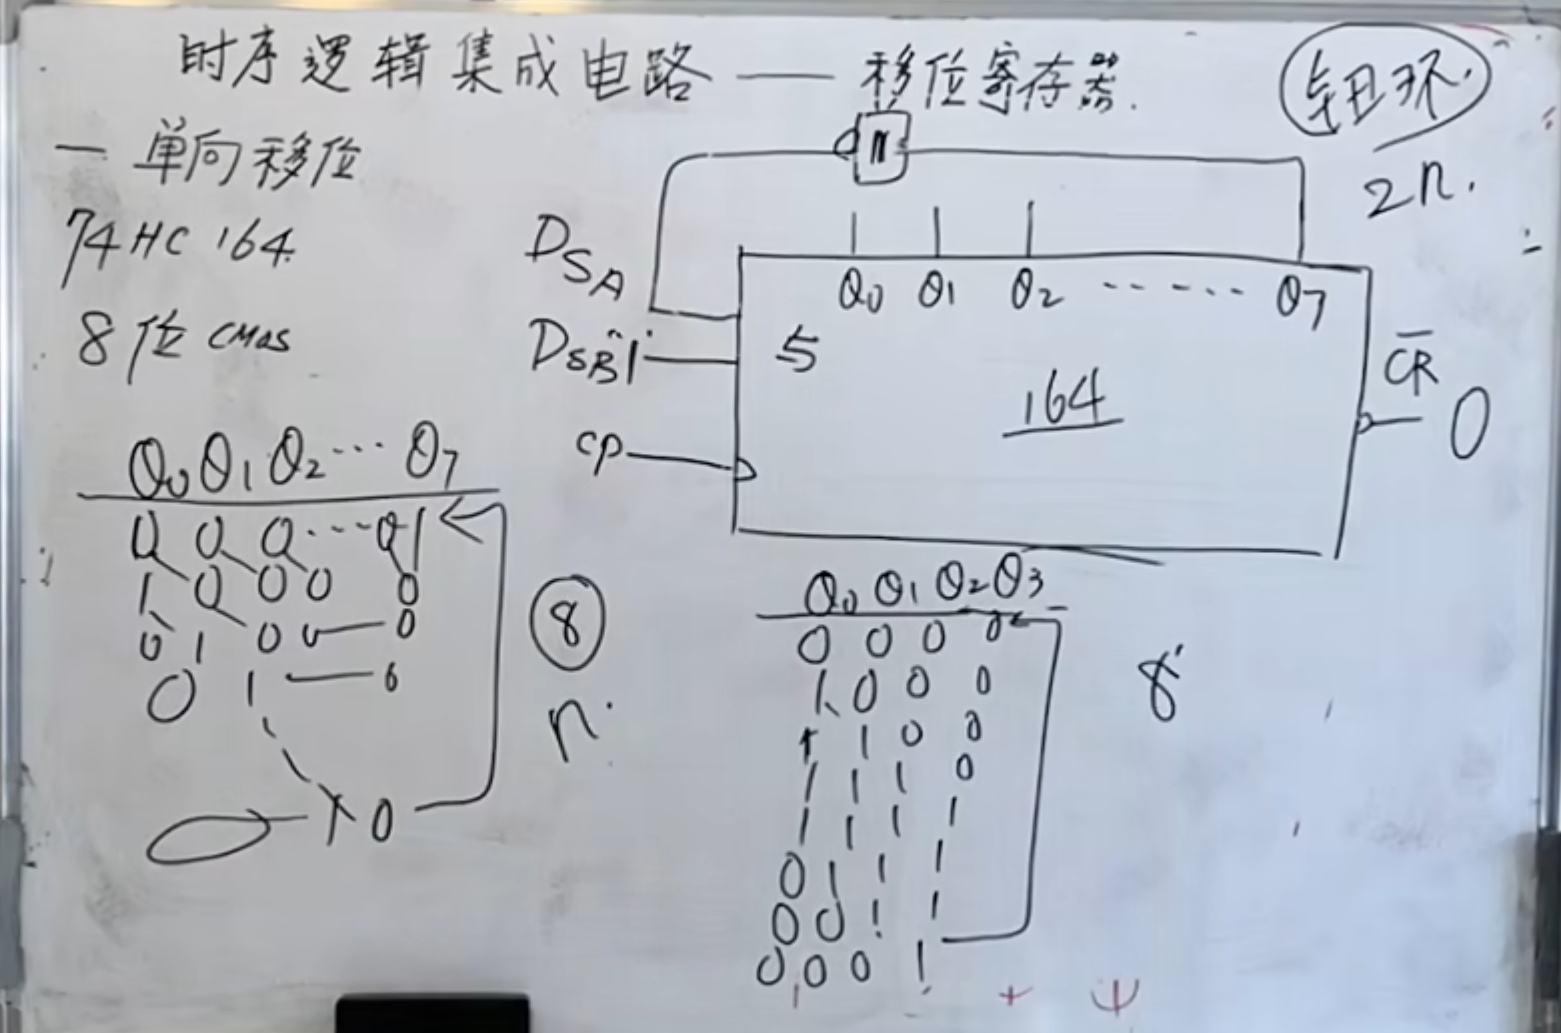 时序逻辑集成电路 — 移位寄存器.
钮环.
2n.
一 单向移位
74HC 164.
8位 CMOS
DSA
DSB "1"
CP
Q0 Q1 Q2 ...... Q7
5
164
CR
0
Q0 Q1 Q2 ... Q7
0 0 0 ... 0 1
1 0 0 0 0
0 1 0 0 — 0
0 1 — 0
1 0
8
n.
Q0 Q1 Q2 Q3
0 0 0 0
1 0 0 0
1 1 0 0
1 1 1 0
1 1 1 1
0 1 1 1
0 0 1 1
0 0 0 1
8